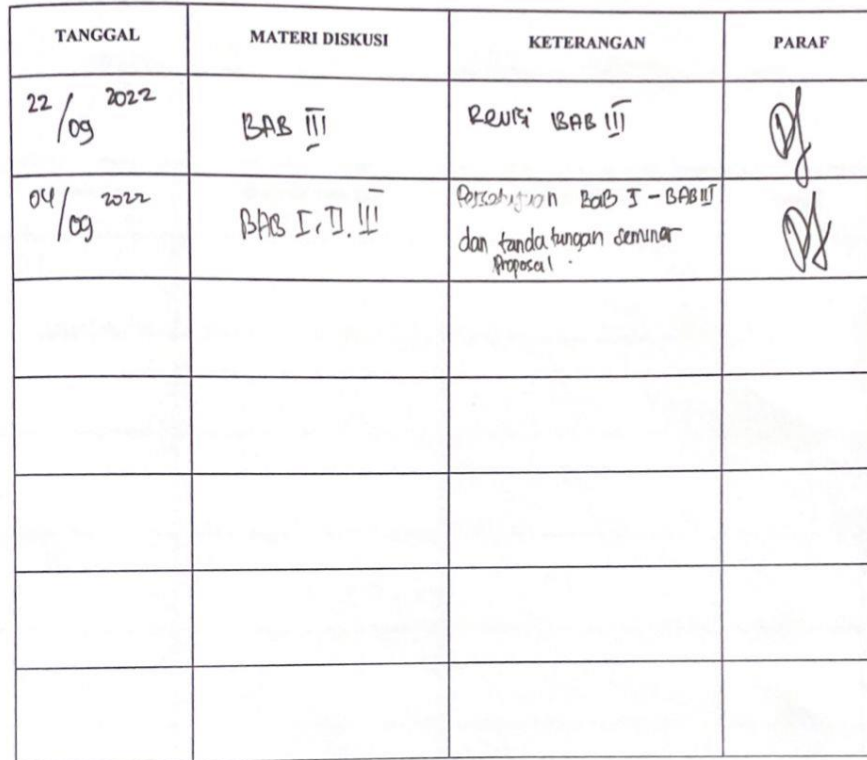 TANGGAL MATERI DISKUSI KETERANGAN PARAF
22/09 2022 BAB III Revisi BAB III
04/09 2022 BAB I, II, III Persetujuan BAB I - BAB III
dan tanda tangan seminar
Proposal.